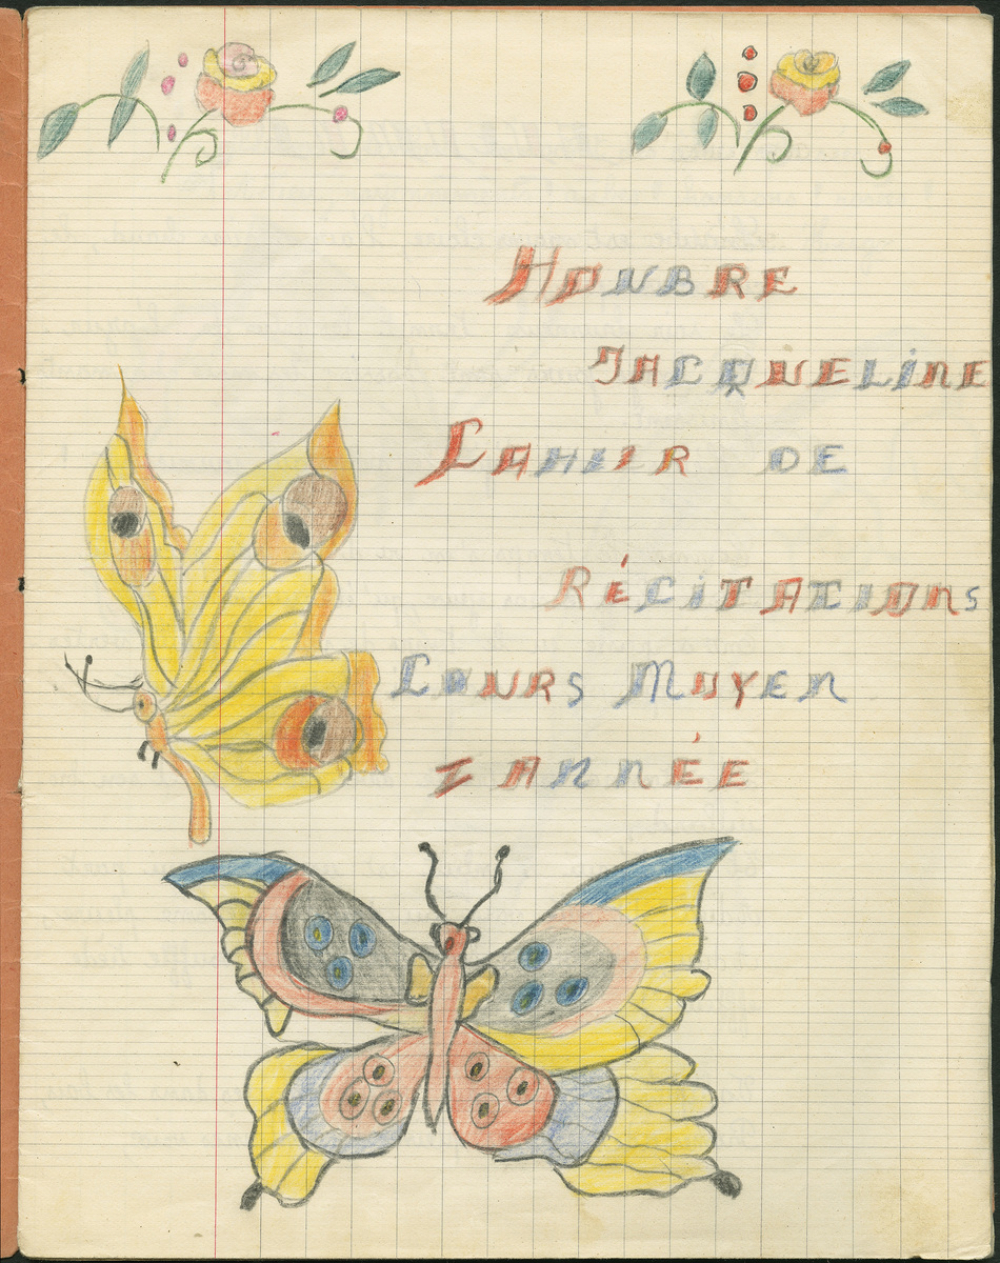 HONBRE
JACQUELINE
CAHIER DE
RÉCITATIONS
COURS MOYEN
2 ANNÉE